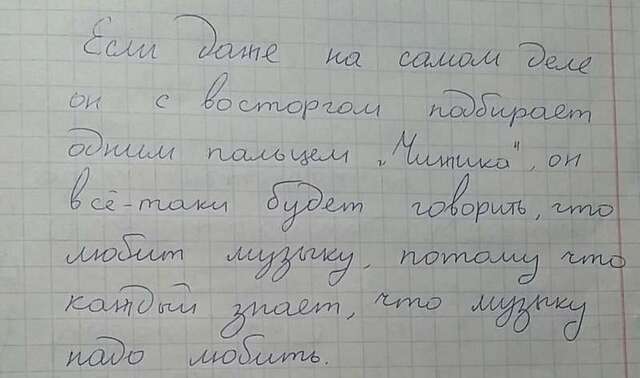 Если даже на самом деле
он с восторгом подбирает
одним пальцем „Чижика", он
всё-таки будет говорить, что
любит музыку, потому что
каждый знает, что музыку
надо любить.